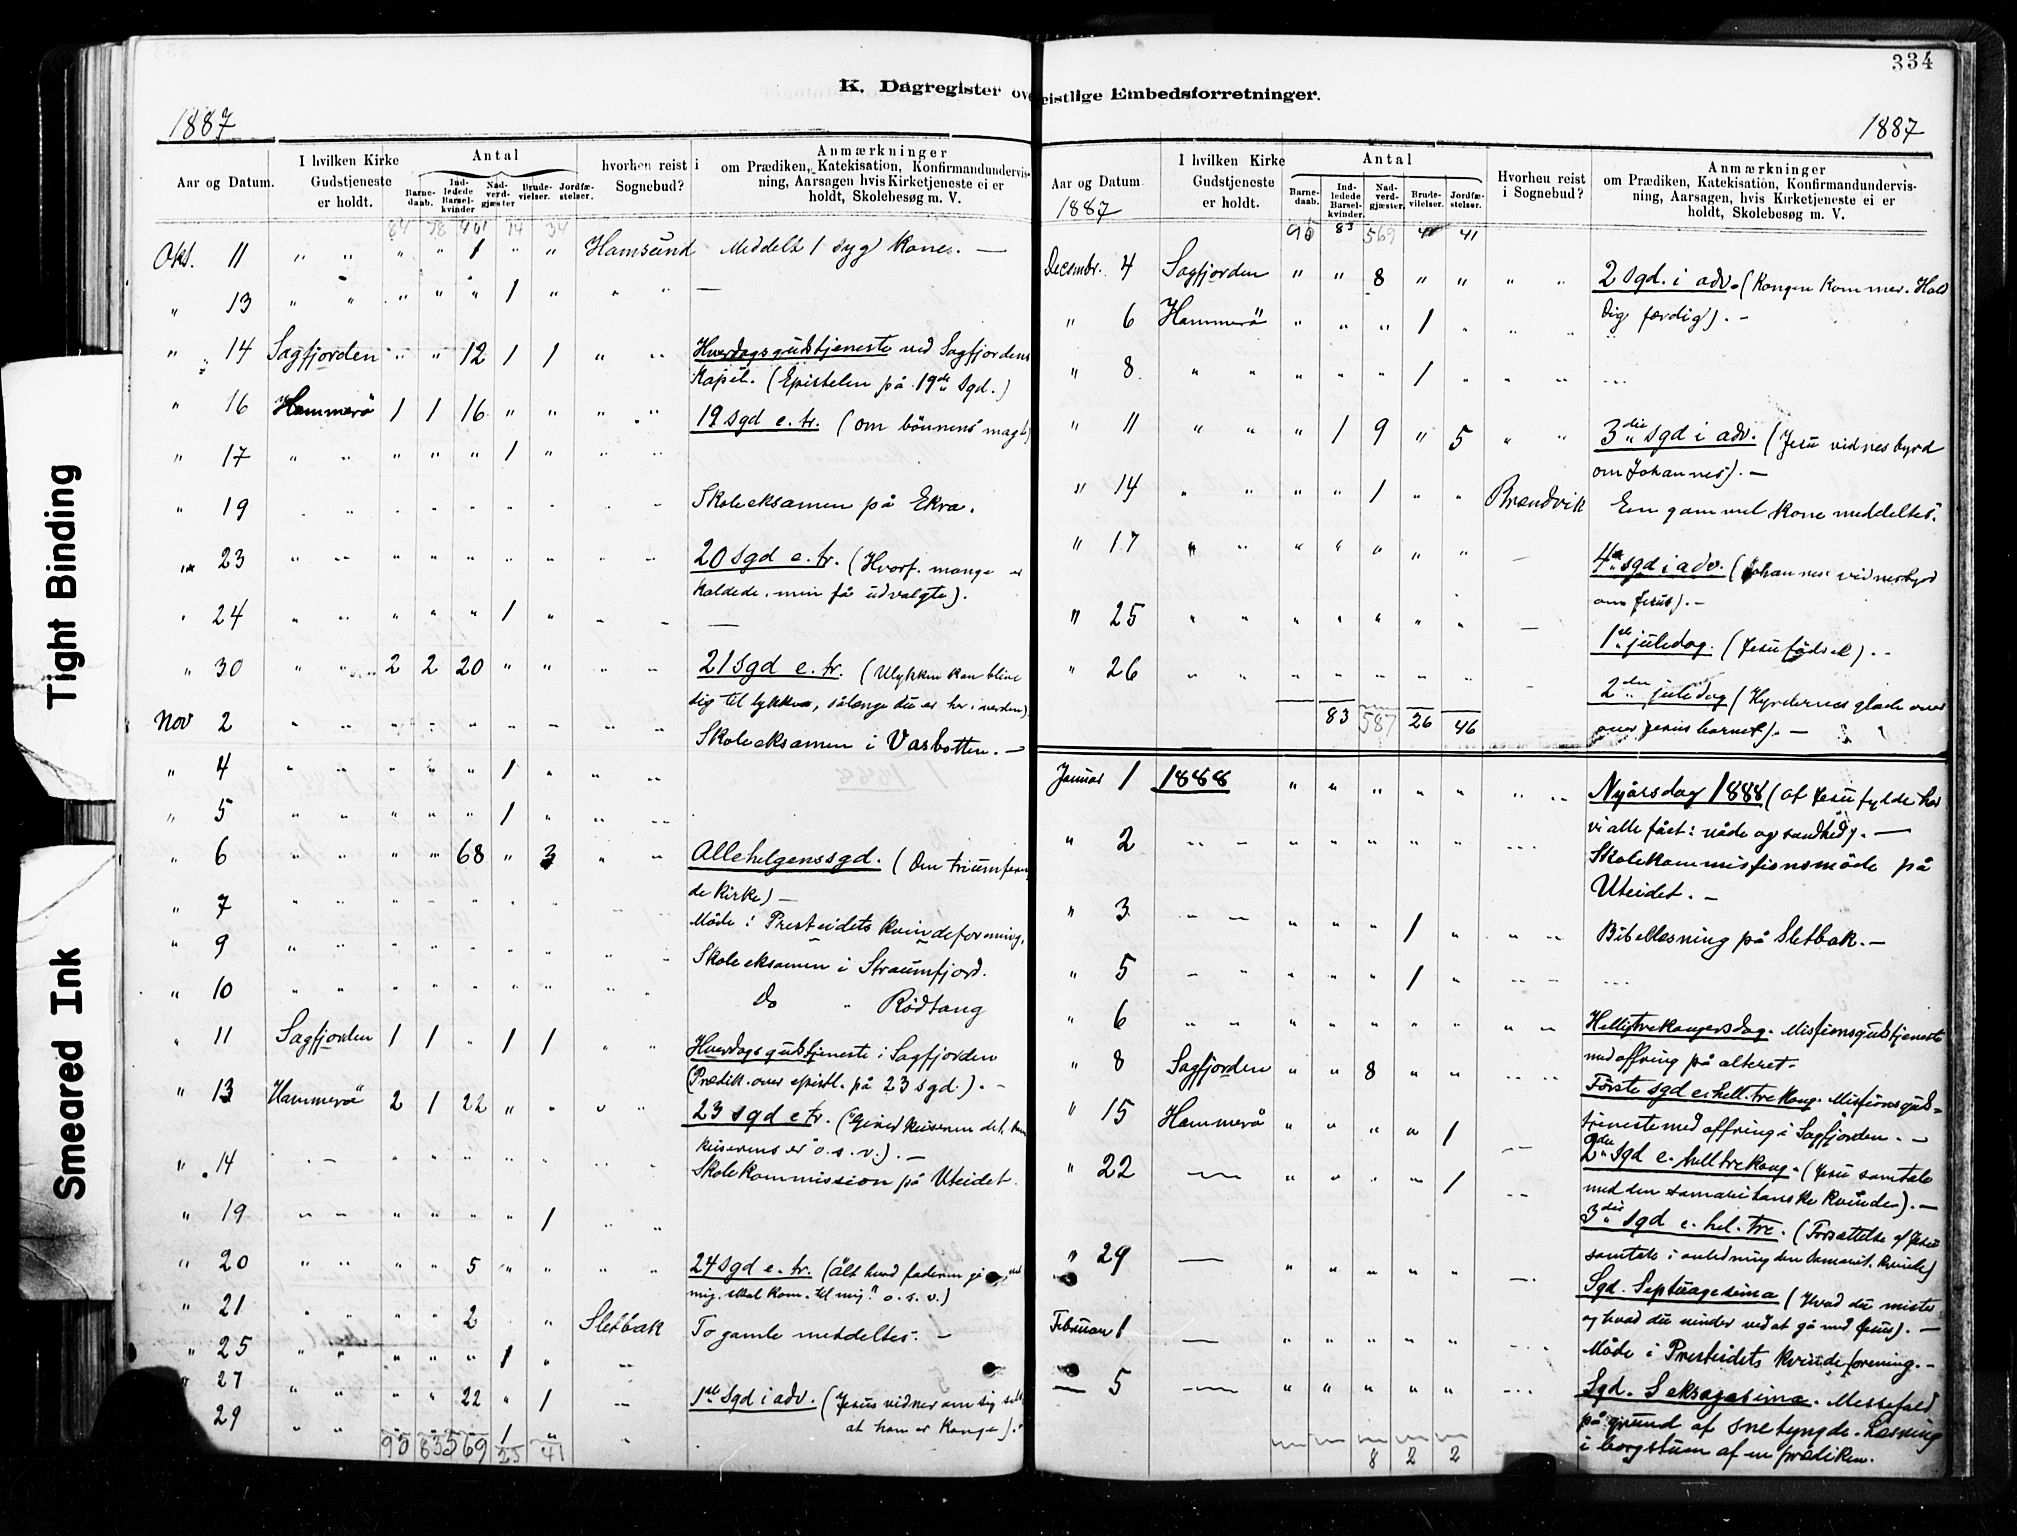 334
K. Dagregister ov eistlige Embedsforretninger.
1887
1887
Tight Binding
Smeared Ink
Aar og Datum.
I hvilken Kirke Gudstjeneste er holdt.
Antal
Barne-daab.
Ind-ledede Barsel-kvinder
Nad-verd-gjæster
Brude-vielser.
Jordfæ-stelser.
hvorhen reist i Sognebud?
Anmærkninger
om Prædiken, Katekisation, Konfirmandundervis-
ning, Aarsagen hvis Kirketjeneste ei er
holdt, Skolebesøg m. V.
84 78 401 14 34
Okt. 11 " " " " 1 " " Hamsund Meddelt 1 syg kone. —
" 13 " " " " " 1 " " " —
" 14 Sagfjorden " " 12 1 1 " " Hverdagsgudstjeneste ved Sagfjordens
Kapel. (Epistelen på 19de sgd.)
" 16 Hammerö 1 1 16 " " " " 19 sgd e. tr. (om bönnens magt)
" 17 " " " " " 1 " " "
" 19 " " " " " " " " " Skoleeksamen på Ekra.
" 23 " " " " " " " " " 20 sgd e. tr. (Hvorf. mange er
kaldede, men få udvalgte).
" 24 " " " " " 1 " " " —
" 30 " " 2 2 20 " " " " 21 sgd e. tr. (Ulykken kan blive
dig til lykke, sålænge du er her i verden)
Nov 2 " " " " " " " " " Skoleeksamen i Vasbotten. —
" 4 " " " " " 1 " " "
" 5 " " " " " 1 " " "
" 6 " " " " 68 " 3 " " Allehelgenssgd. (Den triumferen-
de kirke) —
" 7 " " " " " " " Möde i Presteidets kvindeforening.
" 9 " " " " " " " Skoleeksamen i Straumfjord.
" 10 " " " " " " " do " Rödtang
" 11 Sagfjorden 1 1 " 1 1 " " Hverdagsgudstjeneste i Sagfjorden
(Prædik. over epistl. på 23 sgd.). —
" 13 Hammerö 2 1 22 " " " " 23 sgd e tr. ("Giver keiseren det,
keiserens er" o. s. v.). —
" 14 " — " " " " " " " Skolekommission på Uteidet.
" 19 " " " " " " 1 " "
" 20 " " " " 5 " " " " 24 sgd e. tr. (Alt hvad faderen gi
mig, skal kom. til mig" o. s. v.)
" 21 " " " " 2 " " Sletbak To gamle meddeltes. —
" 25 " " " " " 1 " —
" 27 " " " " 22 " 1 — 1ste Sgd i adv. (Jesus vidner om sig selv
at han er Konge).
" 29 " " " " " 1 " "
95 83 569 25 41
Aar og Datum
1887
I hvilken Kirke Gudstjeneste er holdt.
Antal
Barne-daab.
Ind-ledede Barsel-kvinder
Nad-verd-gjæster.
Brude-vielser.
Jordfæ-stelser.
Hvorhen reist i Sognebud?
Anmærkninger
om Prædiken, Katekisation, Konfirmandundervis-
ning, Aarsagen, hvis Kirketjeneste ei er
holdt, Skolebesøg m. V.
83 569 41
Decembr. 4 Sagfjorden " " 8 " " " " 2 sgd. i adv. (Kongen kommer. Hold
dig færdig). —
" 6 Hammerö " " " 1 " " "
" 8 " " " " " 1 " " "
" 11 " " " 1 9 " 5 " " 3die sgd i adv. (Jesu vidnesbyrd
om Johannes). —
" 14 " " " " 1 " " Brændvik En gammel kone meddeltes.
" 17 " " " " " " " — 4de sgd i adv. (Johannes vidnesbyrd
om Jesus). —
" 25 " " " " " " " — 1ste juledag. (Jesu födsel). —
" 26 " " " " " " " 2den juledag (Hyrdernes glæde over
Jesus barnet). —
83 587 26 46
Januar 1 1888 " " " " " " " Nyårsdag 1888 (Af Jesu fylde har
vi alle fået: nåde og sandhed). —
" 2 " " " " " " " Skolekommissionsmöde på
Uteidet. —
" 3 — — " " " 1 " " " Bibellæsning på Sletbak. —
" 5 — " " " " 1 " " "
" 6 " " " " " " " " " Helligtrekongersdag. Missionsgudstjeneste
med offring på alteret.
" 8 Sagfjorden " " 8 " " Förste sgd e. hell. tre kong. Missionsguds-
tjeneste med offring i Sagfjorden. —
" 15 Hammerö " " " " 1 — 2den Sgd e. hell trekong. (Jesu samtale
med den samaritanske kvinde). —
" 22 — " " " " 1 — 3die sgd e. hel. tre. (Forsættelse af Jesu
samtale i anledning den samarit. kvinde)
" 29 — " " " " " — Sgd. Septuagesima (Hvad du mister
og hvad du vinder ved at gå med Jesus). —
Februar 1 — " " " " " Möde i Presteidets kvindeforening. —
— 5 — " " " " " Sgd. Seksagesima. Messefald
på grund af snetyngde. Læsning
i borgstuen af en prædiken.
8 2 2